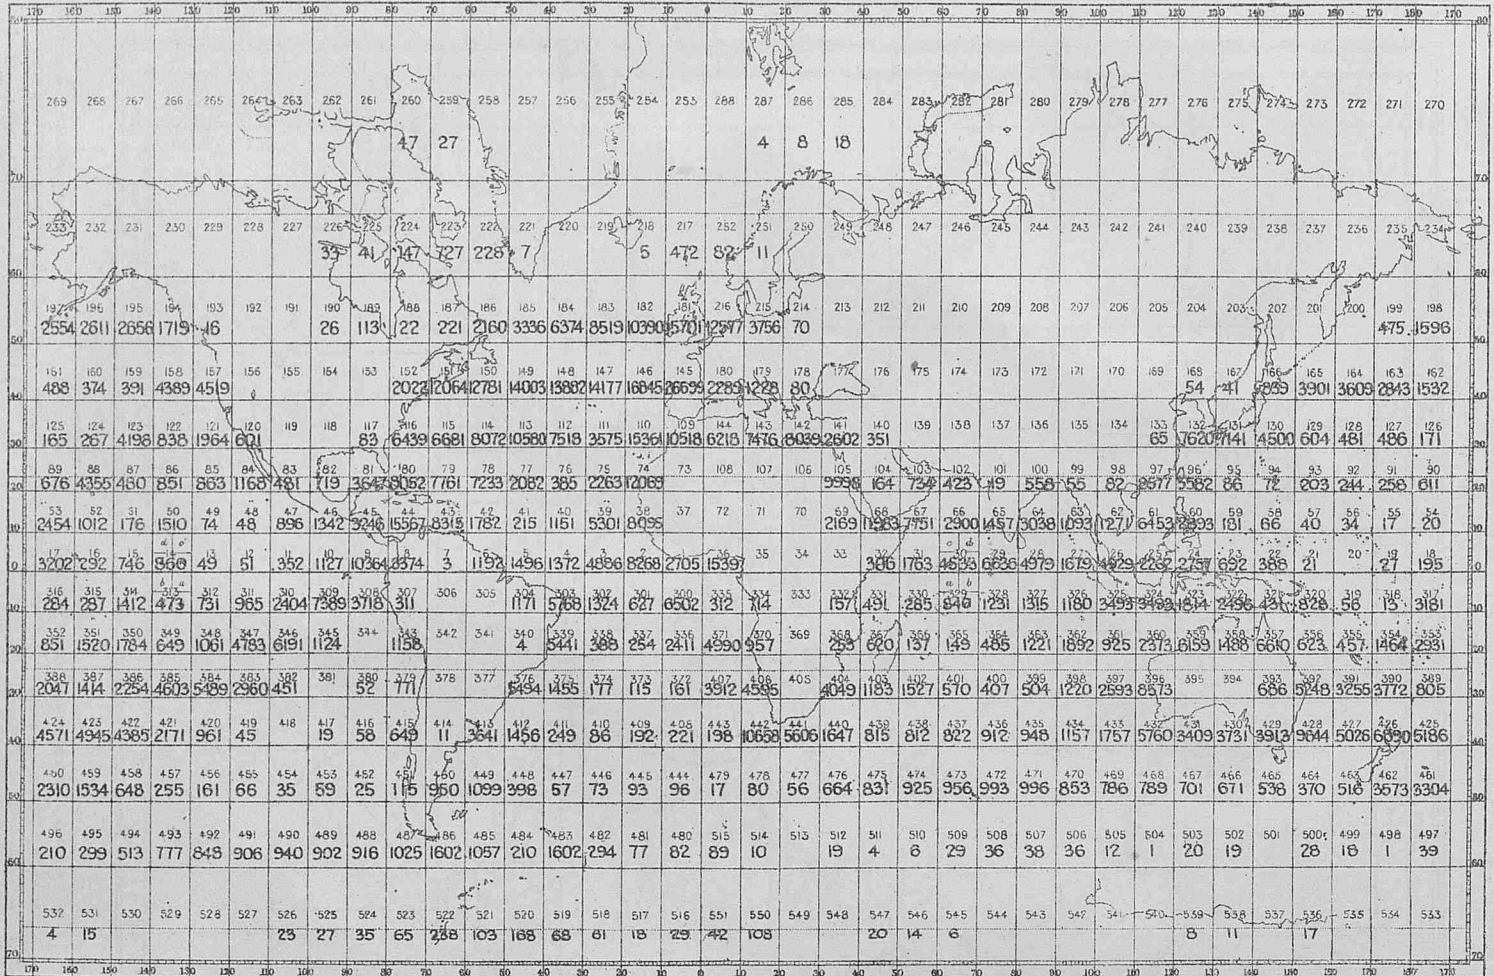 170 160 150 140 130 120 110 100 90 80 70 60 50 40 30 20 10 0 10 20 30 40 50 60 70 80 90 100 110 120 130 140 150 160 170 180 170
80 80
269 268 267 266 265 264 263 262 261 260 259 258 257 256 255 254 253 288 287 286 285 284 283 282 281 280 279 278 277 276 275 274 273 272 271 270
47 27 4 8 18
70 70
233 232 231 230 229 228 227 226 225 224 223 222 221 220 219 218 217 252 251 250 249 248 247 246 245 244 243 242 241 240 239 238 237 236 235 234
33 41 147 727 228 7 5 472 82 11
60 60
197 196 195 194 193 192 191 190 189 188 187 186 185 184 183 182 181 216 215 214 213 212 211 210 209 208 207 206 205 204 203 202 201 200 199 198
2554 2611 2656 1719 16 26 113 22 221 2160 3336 6374 8519 10390 15701 12577 3756 70 475 1596
50 50
161 160 159 158 157 156 155 154 153 152 151 150 149 148 147 146 145 180 179 178 177 176 175 174 173 172 171 170 169 168 167 166 165 164 163 162
488 374 391 4389 4519 2022 12064 12781 14003 13882 14177 16845 26699 2289 1228 80 54 41 5839 3901 3609 2843 1532
40 40
125 124 123 122 121 120 119 118 117 116 115 114 113 112 111 110 109 144 143 142 141 140 139 138 137 136 135 134 133 132 131 130 129 128 127 126
165 267 4198 838 1964 601 83 6439 6681 8072 10580 7518 3575 15361 10518 6218 7476 8039 2602 351 65 7620 7141 4500 604 481 486 171
30 30
89 88 87 86 85 84 83 82 81 80 79 78 77 76 75 74 73 108 107 106 105 104 103 102 101 100 99 98 97 96 95 94 93 92 91 90
676 4355 480 851 863 1168 481 719 3647 8052 7761 7233 2082 385 2263 12069 9998 164 734 423 49 558 55 82 8577 5582 86 72 203 244 258 611
20 20
53 52 51 50 49 48 47 46 45 44 43 42 41 40 39 38 37 72 71 70 69 68 67 66 65 64 63 62 61 60 59 58 57 56 55 54
2454 1012 176 1510 74 48 896 1342 3246 15567 8315 1782 215 1151 5301 8095 2169 11983 7751 2900 1457 3038 1093 1271 6453 2893 181 66 40 34 17 20
10 10
17 16 15 14 13 12 11 10 9 8 7 6 5 4 3 2 1 36 35 34 33 32 31 30 29 28 27 26 25 24 23 22 21 20 19 18
3202 292 746 860 49 51 352 1127 10364 8374 3 1192 1496 1372 4886 8268 2705 1539 386 1763 4533 6636 4979 1679 4929 2262 2757 692 388 21 27 195
0 0
316 315 314 313 312 311 310 309 308 307 306 305 304 303 302 301 300 335 334 333 332 331 330 329 328 327 326 325 324 323 322 321 320 319 318 317
284 287 1412 473 731 965 2404 7389 3718 311 1171 5768 1324 627 6502 312 714 157 491 285 840 1231 1315 1180 3493 3493 1814 2496 431 828 56 13 3181
10 10
352 351 350 349 348 347 346 345 344 343 342 341 340 339 338 337 336 371 370 369 368 367 366 365 364 363 362 361 360 359 358 357 356 355 354 353
851 1520 1784 649 1061 4783 6191 1124 1158 4 5441 388 254 2411 4990 957 253 620 137 149 485 1221 1892 925 2373 6159 1488 6610 623 457 1464 2931
20 20
388 387 386 385 384 383 382 381 380 379 378 377 376 375 374 373 372 407 406 405 404 403 402 401 400 399 398 397 396 395 394 393 392 391 390 389
2047 1414 2254 4603 5489 2960 451 52 771 5494 1455 177 115 161 3912 4595 4049 1183 1527 570 407 504 1220 2593 8573 686 5248 3255 3772 805
30 30
424 423 422 421 420 419 418 417 416 415 414 413 412 411 410 409 408 443 442 441 440 439 438 437 436 435 434 433 432 431 430 429 428 427 426 425
4571 4945 4385 2171 961 45 19 58 649 11 3641 1456 249 86 192 221 198 10658 5606 1647 815 812 822 912 948 1157 1757 5760 3409 3731 3913 9644 5026 6890 5186
40 40
460 459 458 457 456 455 454 453 452 451 450 449 448 447 446 445 444 479 478 477 476 475 474 473 472 471 470 469 468 467 466 465 464 463 462 461
2310 1534 648 255 161 66 35 59 25 115 950 1099 398 57 73 93 96 17 80 56 664 831 925 956 993 996 853 786 789 701 671 538 370 516 3573 3304
50 50
496 495 494 493 492 491 490 489 488 487 486 485 484 483 482 481 480 515 514 513 512 511 510 509 508 507 506 505 504 503 502 501 500 499 498 497
210 299 513 777 848 906 940 902 916 1025 1602 1057 210 1602 294 77 82 89 10 19 4 6 29 36 38 36 12 1 20 19 28 18 1 39
60 60
532 531 530 529 528 527 526 525 524 523 522 521 520 519 518 517 516 551 550 549 548 547 546 545 544 543 542 541 540 539 538 537 536 535 534 533
4 15 23 27 35 65 238 103 168 68 61 18 29 42 108 20 14 6 8 11 17
70 70
170 160 150 140 130 120 110 100 90 80 70 60 50 40 30 20 10 0 10 20 30 40 50 60 70 80 90 100 110 120 130 140 150 160 170 180 170